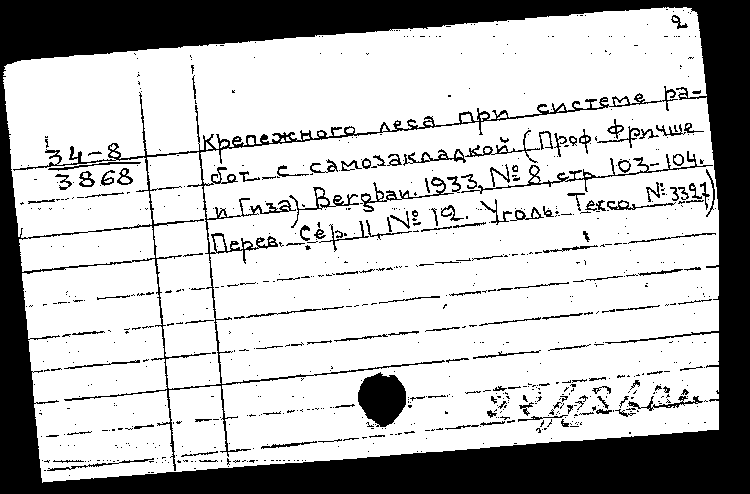 2
34-8
3868
Крепежного леса при системе ра-
бот с самозакладкой. (Проф. Фричше
и Гиза). Bergbau. 1933, №8, стр 103-104.
Перев. Сер. 11, №12. Уголь. Техсо, №3327)